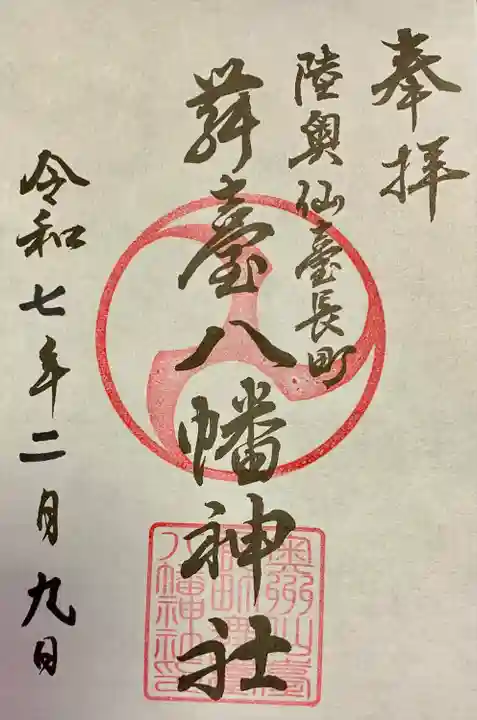 奉拝
陸奥仙臺長町
舞臺八幡神社
令和七年二月九日
奥州仙臺
八幡神社印